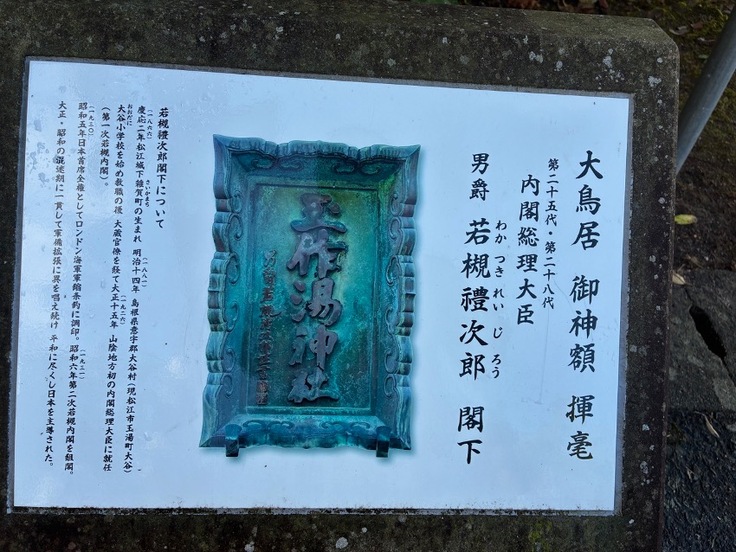 大鳥居 御神額 揮毫
第二十五代・第二十八代
内閣総理大臣
男爵 若槻禮次郎 閣下
わか つき れい じ ろう
玉作湯神社
若槻禮次郎閣下について
(一八六六) さいかまち (一八八一)
慶応二年松江城下雑賀町の生まれ 明治十四年 島根県意宇郡大谷村(現松江市玉湯町大谷)
おおだに (一九二六)
大谷小学校を始め教職の後 大蔵官僚を経て大正十五年 山陰地方初の内閣総理大臣に就任
(第一次若槻内閣)。
(一九三〇) (一九三一)
昭和五年日本首席全権としてロンドン海軍軍縮条約に調印。昭和六年第二次若槻内閣を組閣。
大正・昭和の混迷期に一貫して軍備拡張に異を唱え続け 平和に尽くし日本を主導された。